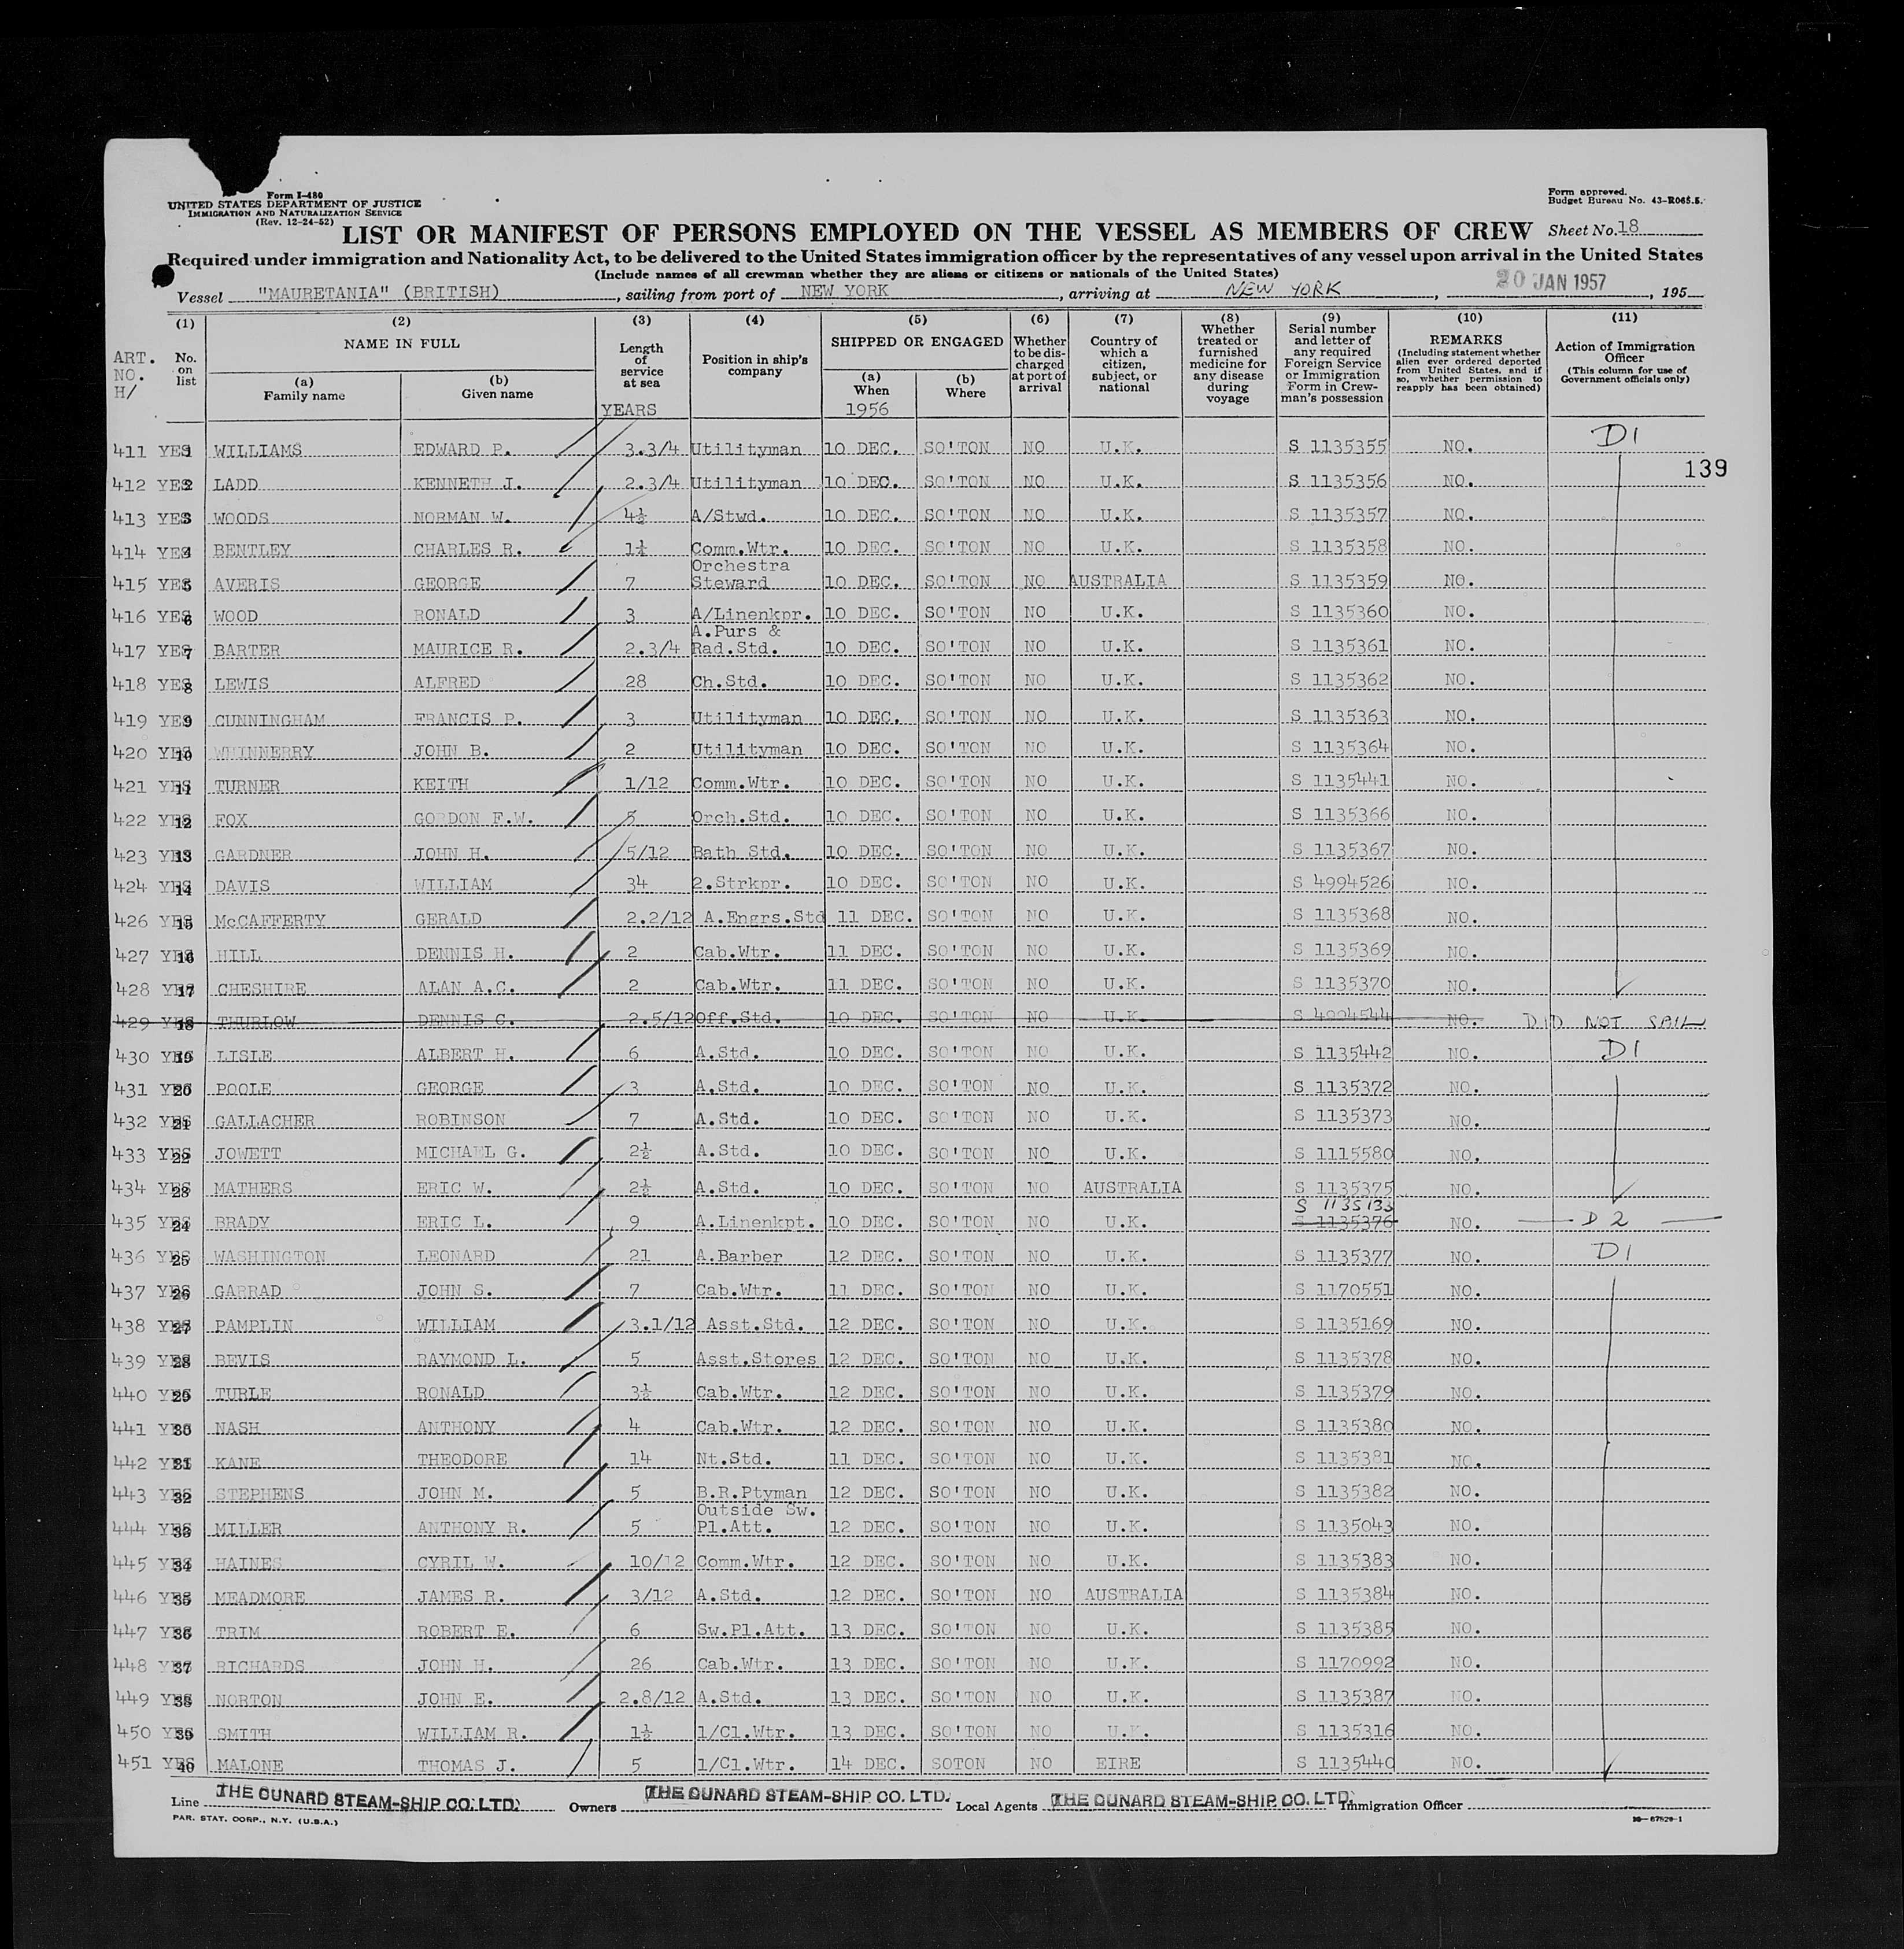 Form I-480
UNITED STATES DEPARTMENT OF JUSTICE
IMMIGRATION AND NATURALIZATION SERVICE
(Rev. 12-24-52)
Form approved.
Budget Bureau No. 43-R065.5.
LIST OR MANIFEST OF PERSONS EMPLOYED ON THE VESSEL AS MEMBERS OF CREW Sheet No. 18
Required under immigration and Nationality Act, to be delivered to the United States immigration officer by the representatives of any vessel upon arrival in the United States
(Include names of all crewman whether they are aliens or citizens or nationals of the United States)
Vessel "MAURETANIA" (BRITISH), sailing from port of NEW YORK, arriving at NEW YORK, 20 JAN 1957, 195
(1) (2) (3) (4) (5) (6) (7) (8) (9) (10) (11)
ART. NO. H/ No. on list NAME IN FULL (a) Family name (b) Given name Length of service at sea YEARS Position in ship's company SHIPPED OR ENGAGED (a) When 1956 (b) Where Whether to be discharged at port of arrival Country of which a citizen, subject, or national Whether treated or furnished medicine for any disease during voyage Serial number and letter of any required Foreign Service or Immigration Form in Crewman's possession REMARKS (Including statement whether alien ever ordered deported from United States, and if so, whether permission to reapply has been obtained) Action of Immigration Officer (This column for use of Government officials only)
411 YES 1 WILLIAMS EDWARD P. 3.3/4 Utilityman 10 DEC. SO'TON NO U.K. S 1135355 NO. D1
139
412 YES 2 LADD KENNETH J. 2.3/4 Utilityman 10 DEC. SO'TON NO U.K. S 1135356 NO.
413 YES 3 WOODS NORMAN W. 4½ A/Stwd. 10 DEC. SO'TON NO U.K. S 1135357 NO.
414 YES 4 BENTLEY CHARLES R. 1¼ Comm.Wtr. 10 DEC. SO'TON NO U.K. S 1135358 NO.
415 YES 5 AVERIS GEORGE 7 Orchestra Steward 10 DEC. SO'TON NO AUSTRALIA S 1135359 NO.
416 YES 6 WOOD RONALD 3 A/Linenkpr. 10 DEC. SO'TON NO U.K. S 1135360 NO.
417 YES 7 BARTER MAURICE R. 2.3/4 A.Purs & Rad.Std. 10 DEC. SO'TON NO U.K. S 1135361 NO.
418 YES 8 LEWIS ALFRED 28 Ch.Std. 10 DEC. SO'TON NO U.K. S 1135362 NO.
419 YES 9 CUNNINGHAM FRANCIS P. 3 Utilityman 10 DEC. SO'TON NO U.K. S 1135363 NO.
420 YES 10 WHINNERRY JOHN B. 2 Utilityman 10 DEC. SO'TON NO U.K. S 1135364 NO.
421 YES 11 TURNER KEITH 1/12 Comm.Wtr. 10 DEC. SO'TON NO U.K. S 1135441 NO.
422 YES 12 FOX GORDON F.W. 5 Orch.Std. 10 DEC. SO'TON NO U.K. S 1135366 NO.
423 YES 13 GARDNER JOHN H. 5/12 Bath Std. 10 DEC. SO'TON NO U.K. S 1135367 NO.
424 YES 14 DAVIS WILLIAM 34 2.Strkpr. 10 DEC. SO'TON NO U.K. S 4994526 NO.
426 YES 15 McCAFFERTY GERALD 2.2/12 A.Engrs.Std 11 DEC. SO'TON NO U.K. S 1135368 NO.
427 YES 16 HILL DENNIS H. 2 Cab.Wtr. 11 DEC. SO'TON NO U.K. S 1135369 NO.
428 YES 17 CHESHIRE ALAN A.C. 2 Cab.Wtr. 11 DEC. SO'TON NO U.K. S 1135370 NO.
429 YES 18 THURLOW DENNIS C. 2.5/12 Off.Std. 10 DEC. SO'TON NO U.K. S 4994544 NO. DID NOT SAIL
430 YES 19 LISLE ALBERT H. 6 A.Std. 10 DEC. SO'TON NO U.K. S 1135442 NO. D1
431 YES 20 POOLE GEORGE 3 A.Std. 10 DEC. SO'TON NO U.K. S 1135372 NO.
432 YES 21 GALLACHER ROBINSON 7 A.Std. 10 DEC. SO'TON NO U.K. S 1135373 NO.
433 YES 22 JOWETT MICHAEL G. 2½ A.Std. 10 DEC. SO'TON NO U.K. S 1115580 NO.
434 YES 23 MATHERS ERIC W. 2½ A.Std. 10 DEC. SO'TON NO AUSTRALIA S 1135375 NO.
435 YES 24 BRADY ERIC L. 9 A.Linenkpt. 10 DEC. SO'TON NO U.K. S 1135133 S 1135376 NO. D2
436 YES 25 WASHINGTON LEONARD 21 A.Barber 12 DEC. SO'TON NO U.K. S 1135377 NO. D1
437 YES 26 GARRAD JOHN S. 7 Cab.Wtr. 11 DEC. SO'TON NO U.K. S 1170551 NO.
438 YES 27 PAMPLIN WILLIAM 3.1/12 Asst.Std. 12 DEC. SO'TON NO U.K. S 1135169 NO.
439 YES 28 BEVIS RAYMOND L. 5 Asst.Stores 12 DEC. SO'TON NO U.K. S 1135378 NO.
440 YES 29 TURLE RONALD 3½ Cab.Wtr. 12 DEC. SO'TON NO U.K. S 1135379 NO.
441 YES 30 NASH ANTHONY 4 Cab.Wtr. 12 DEC. SO'TON NO U.K. S 1135380 NO.
442 YES 31 KANE THEODORE 14 Nt.Std. 11 DEC. SO'TON NO U.K. S 1135381 NO.
443 YES 32 STEPHENS JOHN M. 5 B.R.Ptyman 12 DEC. SO'TON NO U.K. S 1135382 NO.
444 YES 33 MILLER ANTHONY R. 5 Outside Sw. Pl.Att. 12 DEC. SO'TON NO U.K. S 1135043 NO.
445 YES 34 HAINES CYRIL W. 10/12 Comm.Wtr. 12 DEC. SO'TON NO U.K. S 1135383 NO.
446 YES 35 MEADMORE JAMES R. 3/12 A.Std. 12 DEC. SO'TON NO AUSTRALIA S 1135384 NO.
447 YES 36 TRIM ROBERT E. 6 Sw.Pl.Att. 13 DEC. SO'TON NO U.K. S 1135385 NO.
448 YES 37 RICHARDS JOHN H. 26 Cab.Wtr. 13 DEC. SO'TON NO U.K. S 1170992 NO.
449 YES 38 NORTON JOHN E. 2.8/12 A.Std. 13 DEC. SO'TON NO U.K. S 1135387 NO.
450 YES 39 SMITH WILLIAM R. 1½ 1/Cl.Wtr. 13 DEC. SO'TON NO U.K. S 1135316 NO.
451 YES 40 MALONE THOMAS J. 5 1/Cl.Wtr. 14 DEC. SOTON NO EIRE S 1135440 NO.
Line THE CUNARD STEAM-SHIP CO. LTD. Owners THE CUNARD STEAM-SHIP CO. LTD. Local Agents THE CUNARD STEAM-SHIP CO. LTD. Immigration Officer
PAR. STAT. CORP., N.Y. (U.S.A.)